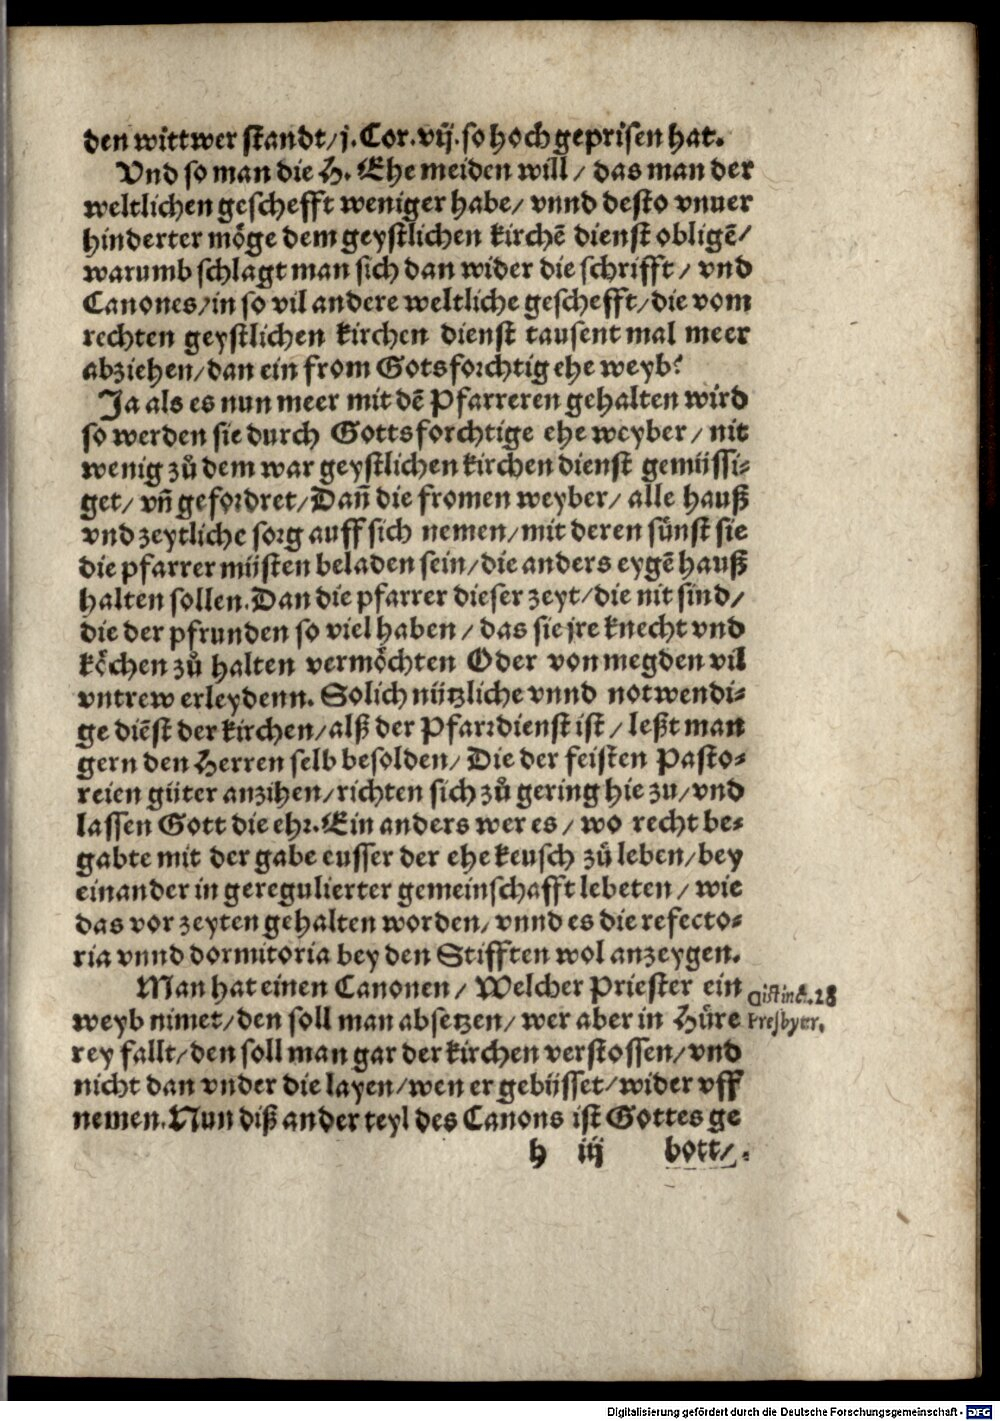 den wittwer standt/j. Cor.vij.so hoch geprisen hat.
Vnd so man die H. Ehe meiden will/ das man der
weltlichen geschefft weniger habe/ vnnd desto vnuer
hinderter möge dem geystlichen kirchē dienst obligē/
warumb schlagt man sich dan wider die schrifft/ vnd
Canones/in so vil andere weltliche geschefft/die vom
rechten geystlichen kirchen dienst tausent mal meer
abziehen/dan ein from Gotsforchtig ehe weyb?
Ja als es nun meer mit dē Pfarreren gehalten wird
so werden sie durch Gottsforchtige ehe weyber/ nit
wenig zů dem war geystlichen kirchen dienst gemüssi-
get/ vn̄ gefordret/Dan̄ die fromen weyber/ alle hauß
vnd zeytliche sorg auff sich nemen/mit deren sünst sie
die pfarrer müsten beladen sein/die anders eygē hauß
halten sollen.Dan die pfarrer dieser zeyt/die nit sind/
die der pfrunden so viel haben/ das sie jre knecht vnd
köchen zů halten vermöchten Oder von megden vil
vntrew erleydenn. Solich nützliche vnnd notwendi-
ge diēst der kirchen/alß der Pfarrdienst ist/ leßt man
gern den Herren selb besolden/ Die der feisten Pasto-
reien güter anzihen/richten sich zů gering hie zu/vnd
lassen Gott die ehr.Ein anders wer es/ wo recht be-
gabte mit der gabe eusser der ehe keusch zů leben/bey
einander in geregulierter gemeinschafft lebeten/ wie
das vor zeyten gehalten worden/ vnnd es die refecto-
ria vnnd dormitoria bey den Stifften wol anzeygen.
Man hat einen Canonen/ Welcher Priester ein
distinct.28
weyb nimet/den soll man absetzen/ wer aber in Hůre
Presbyter.
rey fallt/den soll man gar der kirchen verstossen/vnd
nicht dan vnder die layen/wen er gebüsset/wider vff
nemen.Nun diß ander teyl des Canons ist Gottes ge
h iij bott/
Digitalisierung gefördert durch die Deutsche Forschungsgemeinschaft - DFG